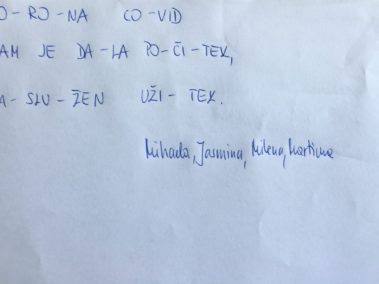 O-RO-NA CO-VID
AM JE DA-LA PO-ČI-TEK,
A-SLU-ŽEN UŽI-TEK.
Mihaela, Jasmina, Milena, Martina